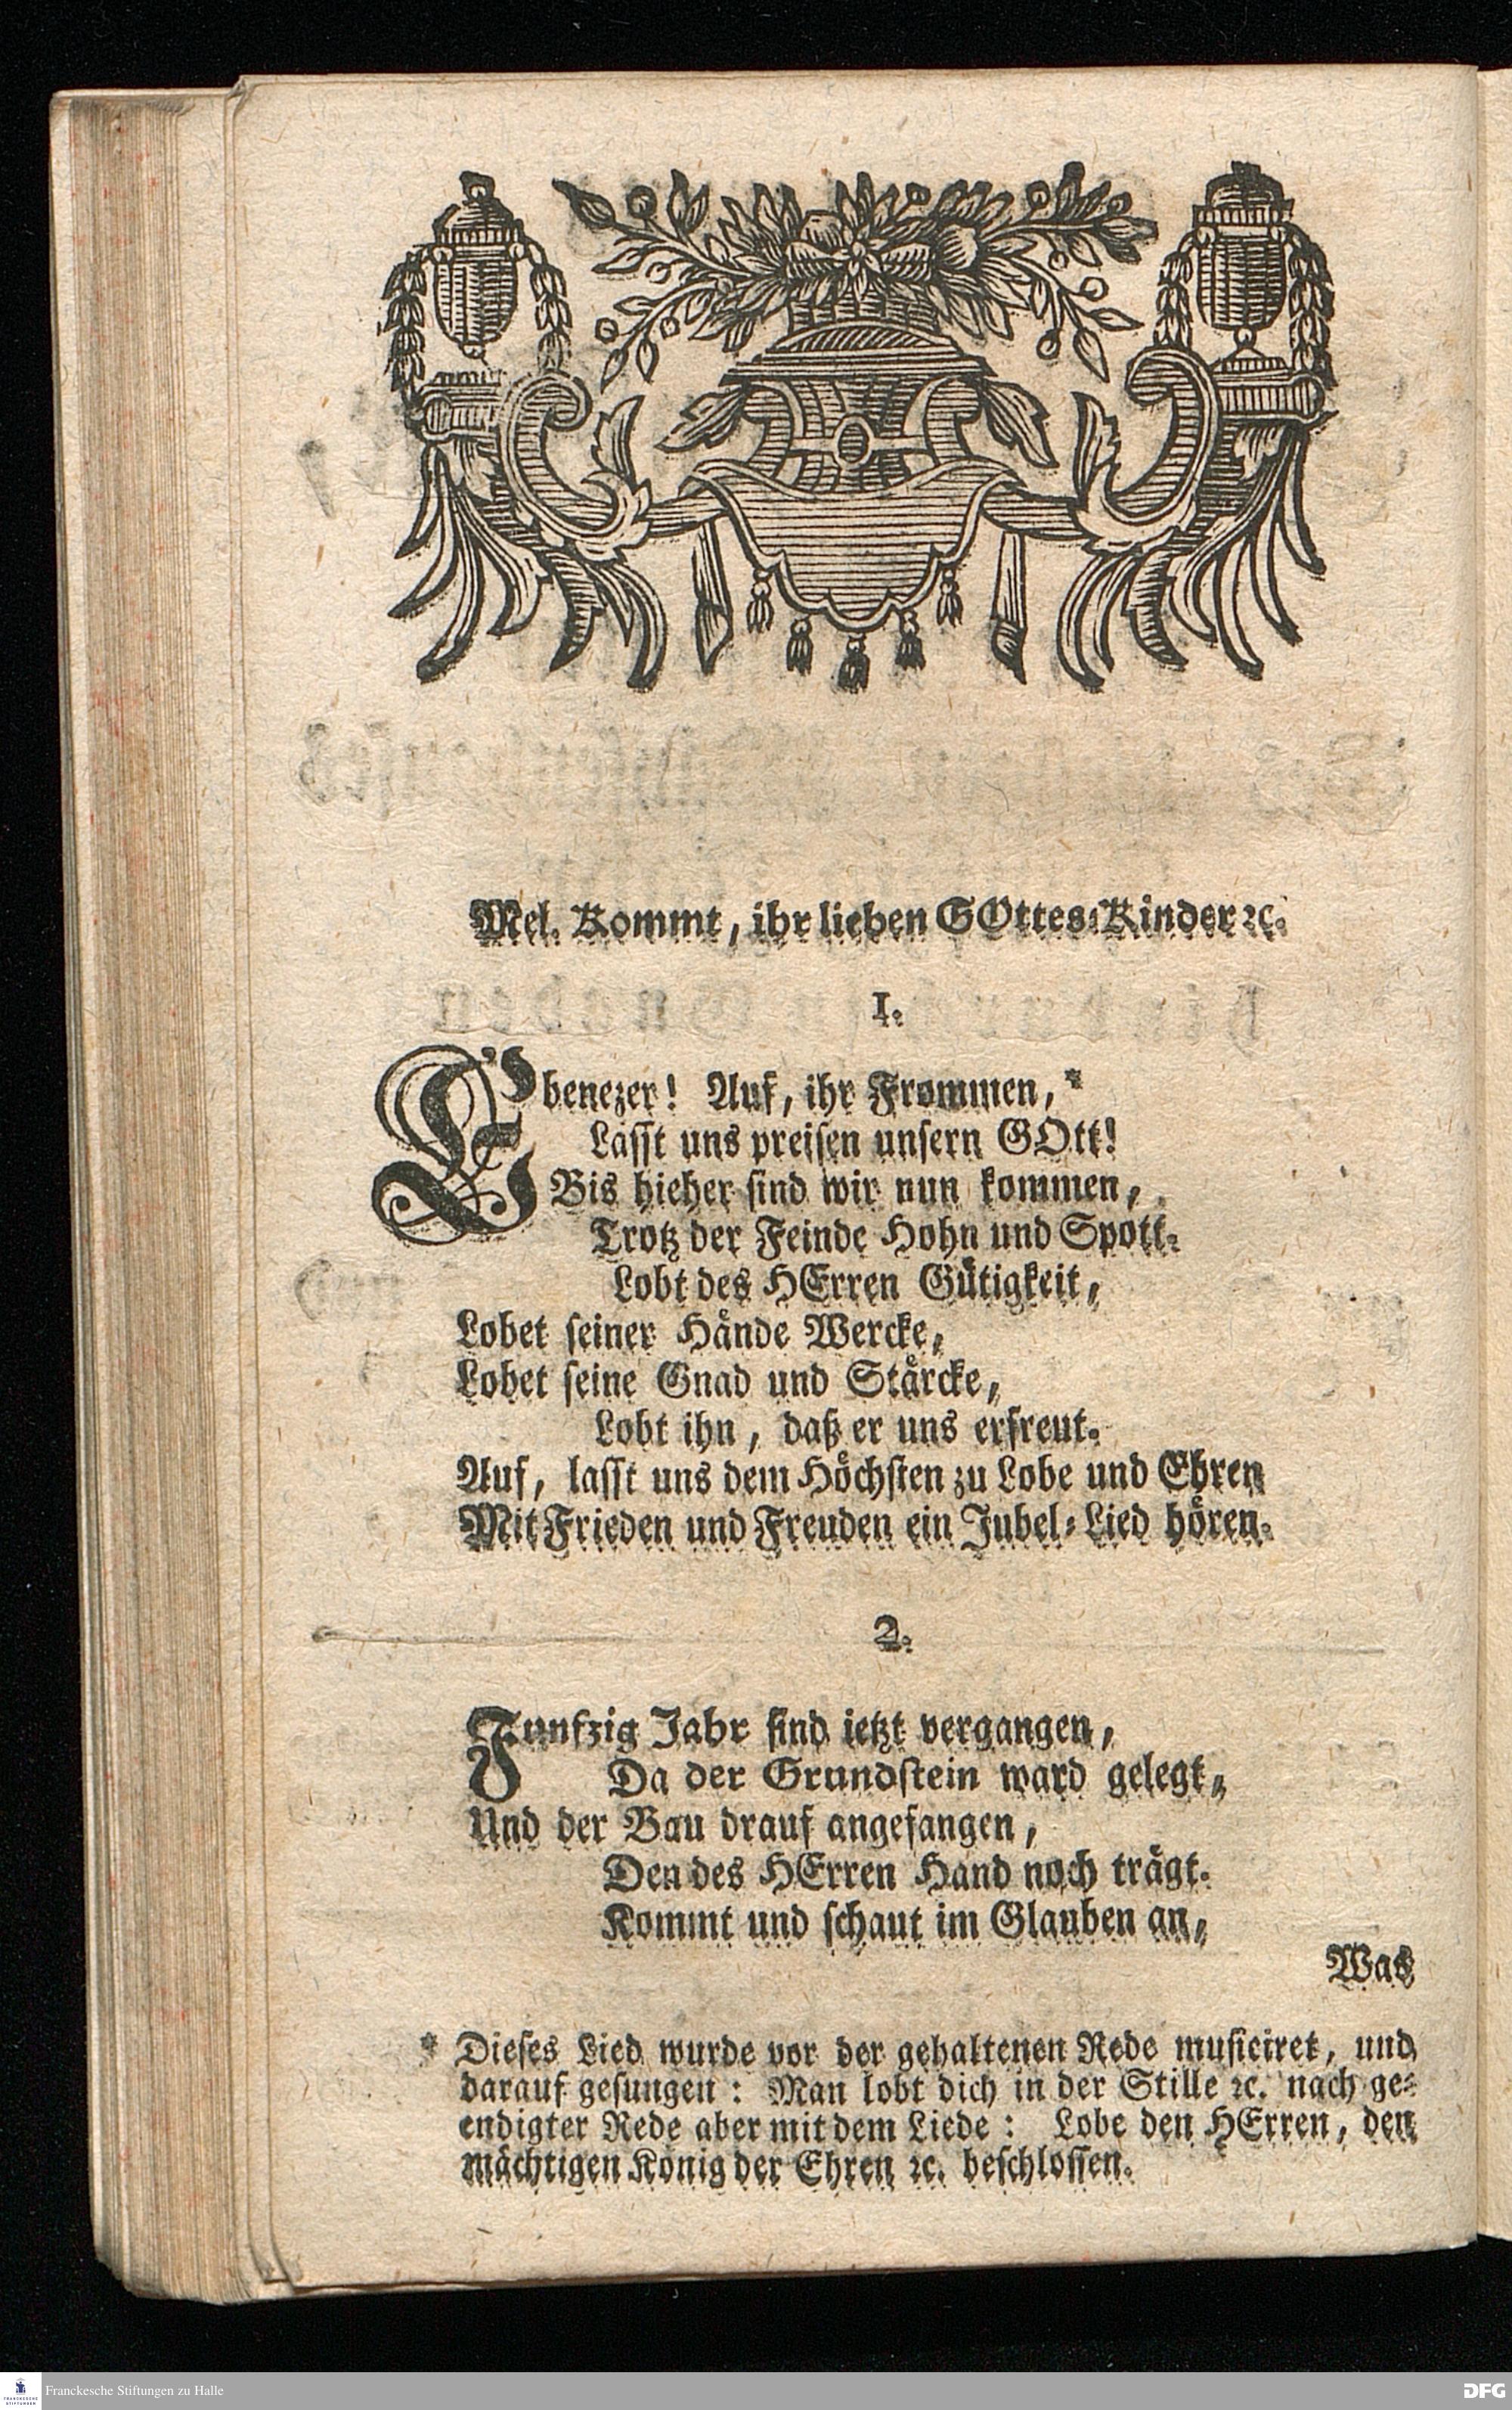 Mel. Kommt, ihr lieben GOttes-Kinder ꝛc.
1.
Ebenezer! Auf, ihr Frommen,*
Lasst uns preisen unsern GOtt!
Bis hieher sind wir nun kommen,
Trotz der Feinde Hohn und Spott.
Lobt des HErren Gütigkeit,
Lobet seiner Hände Wercke,
Lobet seine Gnad und Stärcke,
Lobt ihn, daß er uns erfreut.
Auf, lasst uns dem Höchsten zu Lobe und Ehren
Mit Frieden und Freuden ein Jubel-Lied hören.
2.
Funfzig Jahr sind ietzt vergangen,
Da der Grundstein ward gelegt,
Und der Bau drauf angefangen,
Den des HErren Hand noch trägt.
Kommt und schaut im Glauben an,
Was
* Dieses Lied wurde vor der gehaltenen Rede musiciret, und
darauf gesungen: Man lobt dich in der Stille ꝛc. nach ge-
endigter Rede aber mit dem Liede: Lobe den HErren, den
mächtigen König der Ehren ꝛc. beschlossen.
FRANCKESCHE
STIFTUNGEN
Franckesche Stiftungen zu Halle
DFG